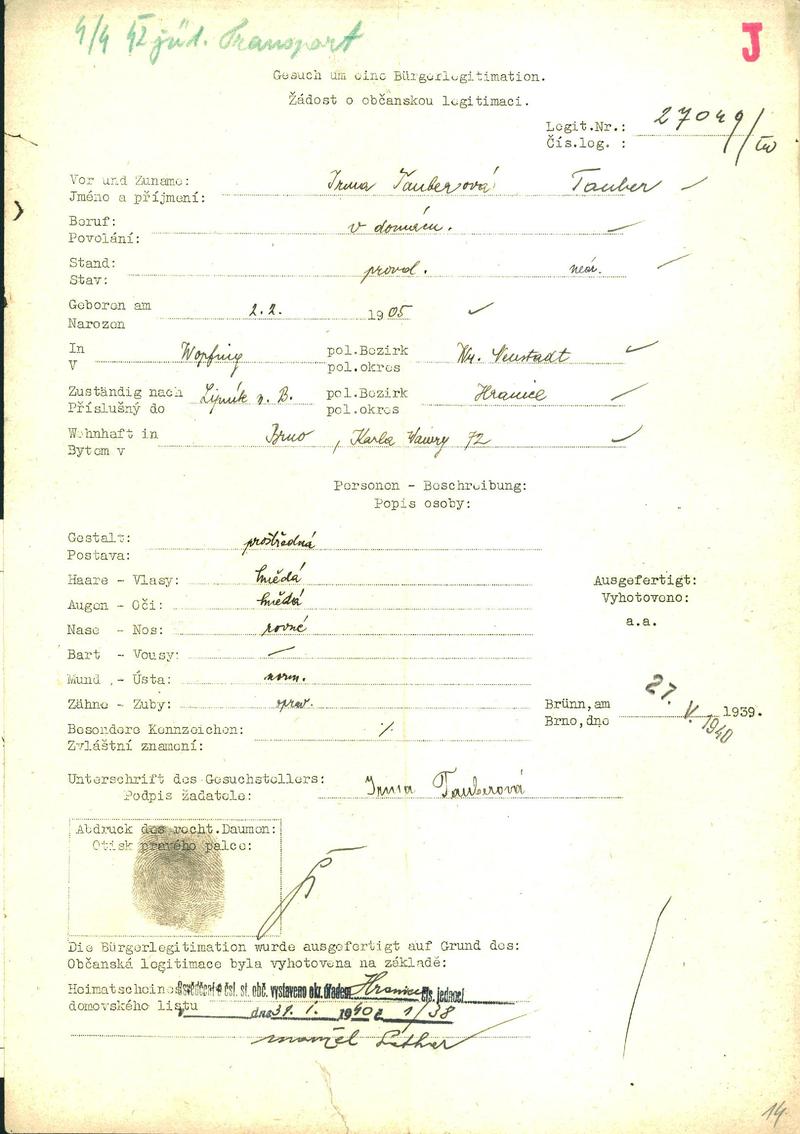 4/4 42 jüd. Transport
J
Gesuch um eine Bürgerlegitimation.
Žádost o občanskou legitimaci.
Legit.Nr.: 27049/IV
Čís.log. :
Vor und Zuname: Irma Tauberová Tauber
Jméno a příjmení:
Beruf: v domácn.
Povolání:
Stand: provd.
Stav:
Geboren am 2.2. 1905
Narozen
In Wopfing pol.Bezirk Wr. Neustadt
V pol.okres
Zuständig nach Lipník n. B. pol.Bezirk Hranice
Příslušný do pol.okres
Wohnhaft in Brno, Karla Wawry 72
Bytem v
Personen - Beschreibung:
Popis osoby:
Gestalt: prostředná
Postava:
Haare - Vlasy: hnědá
Augen - Oči: hnědá
Nase - Nos: rovné
Bart - Vousy: —
Mund - Ústa: norm.
Zähne - Zuby: oprav.
Besondere Kennzeichen: %
Zvláštní znamení:
Ausgefertigt:
Vyhotoveno:
a.a.
Brünn,am 27. V. 1940 1939.
Brno,dne
Unterschrift des Gesuchstellers: Irma Tauberová
Podpis žadatele:
Abdruck des recht.Daumen:
Otisk pravého palce:
Die Bürgerlegitimation wurde ausgefertigt auf Grund des:
Občanská legitimace byla vyhotovena na základě:
Heimatscheines Osvědčení o čsl. st. obč. vystaveno okr. úřadem Hranice čís. jednací
domovského listu v dne 31. 1. 1940 č 1/38
manžel Lothar
14